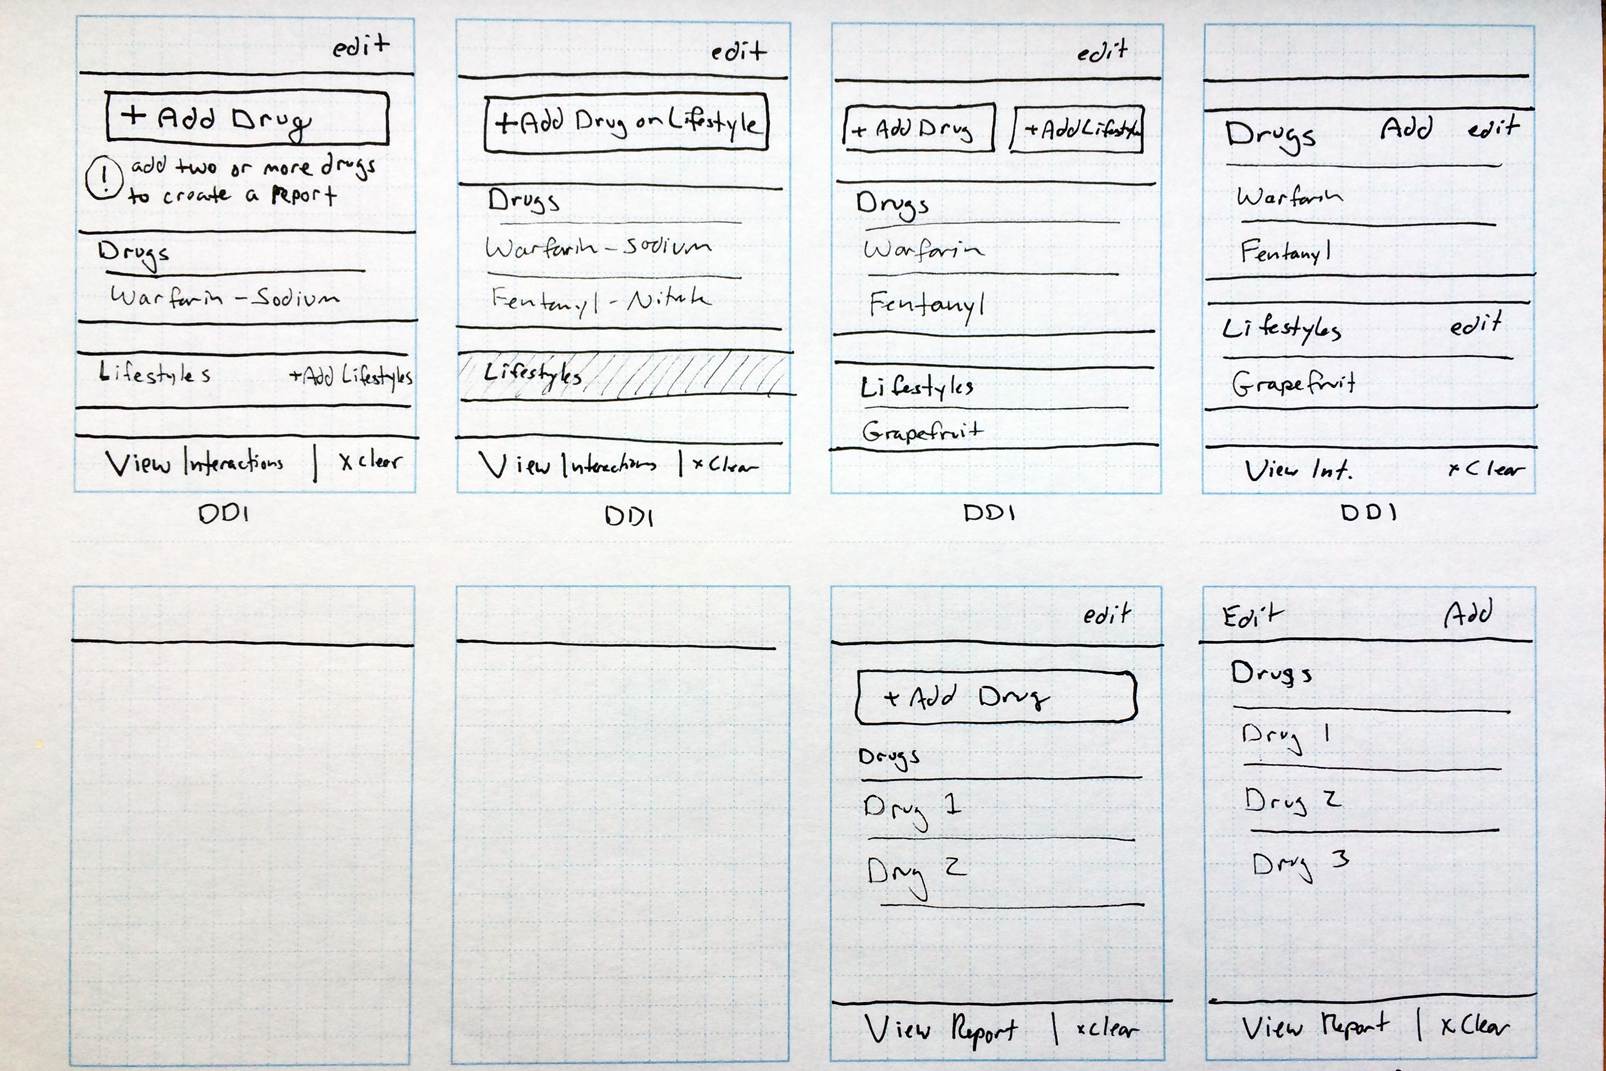 edit
+ Add Drug
! add two or more drugs
to create a report
Drugs
Warfarin - Sodium
Lifestyles +Add Lifestyles
View Interactions | x clear
DDI
edit
+Add Drug or Lifestyle
Drugs
Warfarin - Sodium
Fentanyl - Nitrate
Lifestyles
View Interactions | x Clear
DDI
edit
+ Add Drug +Add Lifestyle
Drugs
Warfarin
Fentanyl
Lifestyles
Grapefruit
DDI
Drugs Add edit
Warfarin
Fentanyl
Lifestyles edit
Grapefruit
View Int. x Clear
DDI
edit
+ Add Drug
Drugs
Drug 1
Drug 2
View Report | x clear
Edit Add
Drugs
Drug 1
Drug 2
Drug 3
View Report | x Clear